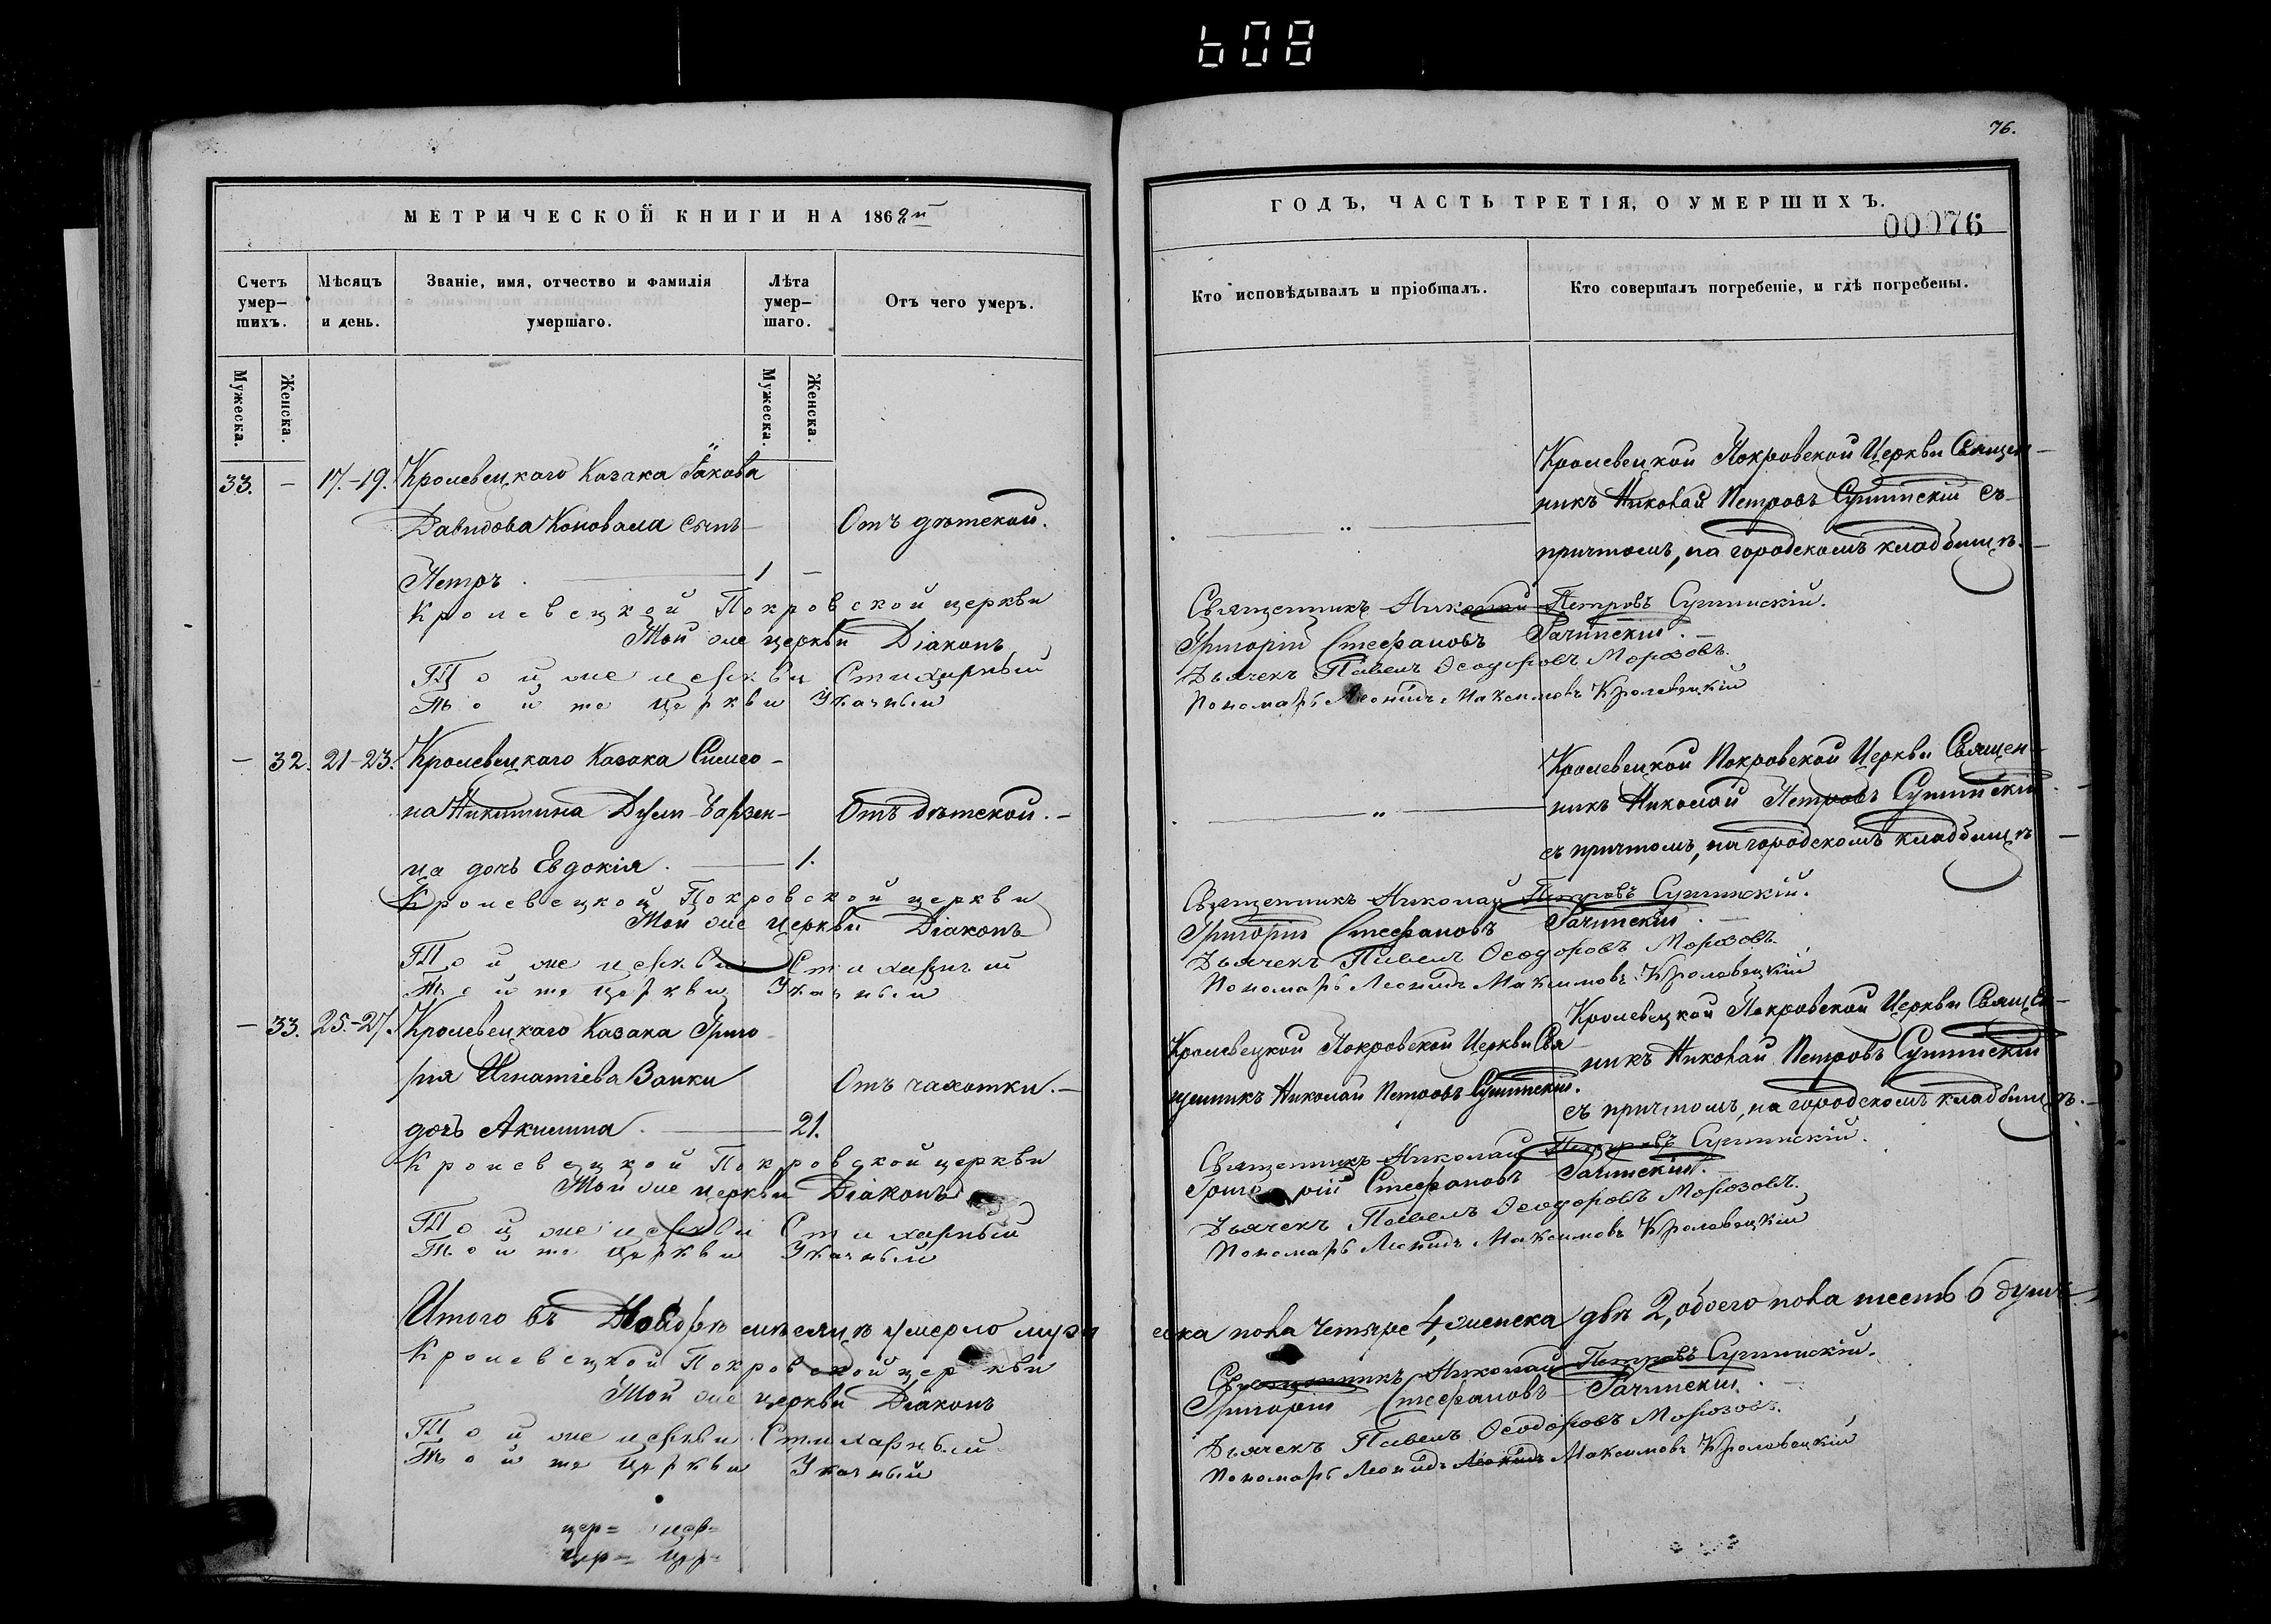 608
76.
МЕТРИЧЕСКОЙ КНИГИ НА 1862й
ГОДЪ, ЧАСТЬ ТРЕТІЯ, О УМЕРШИХЪ.
00076
Счетъ умер-шихъ.
Мѣсяцъ и день.
Званіе, имя, отчество и фамилія умершаго.
Лѣта умер-шаго.
Отъ чего умеръ.
Кто исповѣдывалъ и пріобщалъ.
Кто совершалъ погребеніе, и гдѣ погребены.
Мужеска.
Женска.
Мужеска.
Женска.
33. – 17.-19. Кролевецкаго Казака Іакова
Давидова Коновала сынъ
Петръ. 1 –
Отъ дѣтской.
Кролевецкой Покровской Церкви Священ-
никъ Николай Петровъ съ
причтомъ, на городскомъ кладбищѣ.
Кролевецкой Покровской церкви Священникъ Николай Петровъ
Той же церкви Діаконъ Григорій Стефановъ Рачинскій.
Той же церкви Стихарный Дьячекъ Павелъ Ѳеодоровъ Морозовъ.
Той же церкви Указный Пономарь Леонидъ Максимовъ Кролевецкій
– 32. 21-23. Кролевецкаго Казака Симео-
на Никитина
ца дочь Евдокія. 1.
Отъ дѣтской.
Кролевецкой Покровской Церкви Священ-
никъ Николай Петровъ
съ причтомъ, на городскомъ кладбищѣ
Кролевецкой Покровской церкви Священникъ Николай Петровъ
Той же церкви Діаконъ Григорій Стефановъ Рачинскій.
Той же церкви Стихарный Дьячекъ Павелъ Ѳеодоровъ Морозовъ.
Той же церкви Указный Пономарь Леонидъ Максимовъ Кролевецкій
– 33. 25.-27. Кролевецкаго Казака Григо-
рія Игнатіева
дочь Акилина. 21.
Отъ чахотки.
Кролевецкой Покровской Церкви Свя-
щенникъ Николай Петровъ
Кролевецкой Покровской Церкви Священ-
никъ Николай Петровъ
съ причтомъ, на городскомъ кладбищѣ.
Кролевецкой Покровской церкви Священникъ Николай Петровъ
Той же церкви Діаконъ Григорій Стефановъ Рачинскій.
Той же церкви Стихарный Дьячекъ Павелъ Ѳеодоровъ Морозовъ.
Той же церкви Указный Пономарь Леонидъ Максимовъ Кролевецкій
Итого въ Ноябрѣ мѣсяцѣ умерло муже-
ска пола четыре 4, женска двѣ 2, обоего пола шесть 6 душъ
Кролевецкой Покровской церкви Священникъ Николай Петровъ
Той же церкви Діаконъ Григорій Стефановъ Рачинскій.
Той же церкви Стихарный Дьячекъ Павелъ Ѳеодоровъ Морозовъ.
Той же церкви Указный Пономарь Леонидъ Леонидъ Максимовъ Кролевецкій